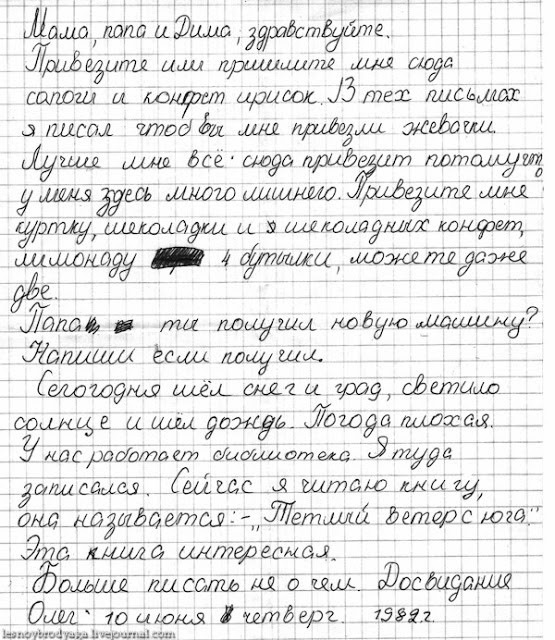 Мама, папа и Дима, здравствуйте.
Привезите или пришлите мне сюда
сапоги и конфет ирисок. В тех письмах
я писал чтоб вы мне привезли жевачки.
Лучше мне всё сюда привезит потому что
у меня здесь много лишнего. Привезите мне
куртку, шеколадки и шеколадных конфет,
лимонаду 4 бутылки, можете даже
две.
Папа ты получил новую машину?
Напиши если получил.
Сегогодня шёл снег и град, светило
солнце и шёл дождь. Погода плохая.
У нас работает библиотека. Я туда
записался. Сейчас я читаю книгу,
она называется:-„Тетлый ветер с юга".
Эта книга интересная.
Больше писать не о чем. Досвидание
Олег 10 июня в четверг. 1982г.
lesnoybrodyaga.livejournal.com